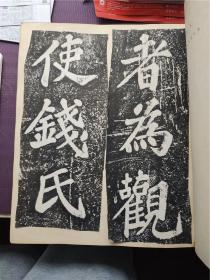 者為觀
使錢氏